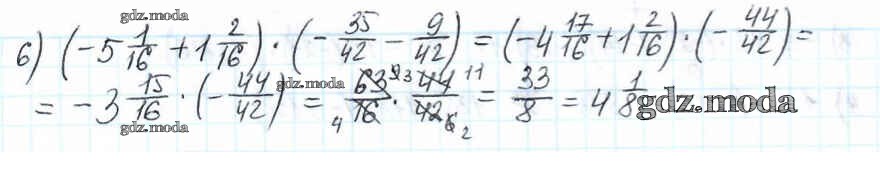 gdz.moda
6) (-5 1/16 + 1 2/16) · (- 35/42 - 9/42) = (-4 17/16 + 1 2/16) · (- 44/42) =
gdz.moda
= -3 15/16 · (- 44/42) = 63/16 · 44/42 = 33/8 = 4 1/8
9 3 11
4 6 2
gdz.moda
gdz.moda
gdz.moda